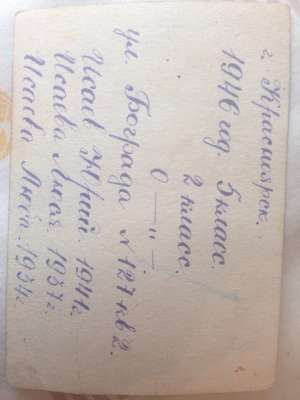 г. Красноярск.
1946 год. 5 класс.
2 класс.
0 —"—
ул. Бограда №127 кв 2.
Исаев Юрий. 1941г.
Исаева Люся 1937г.
Исаева Люба. 1934г.